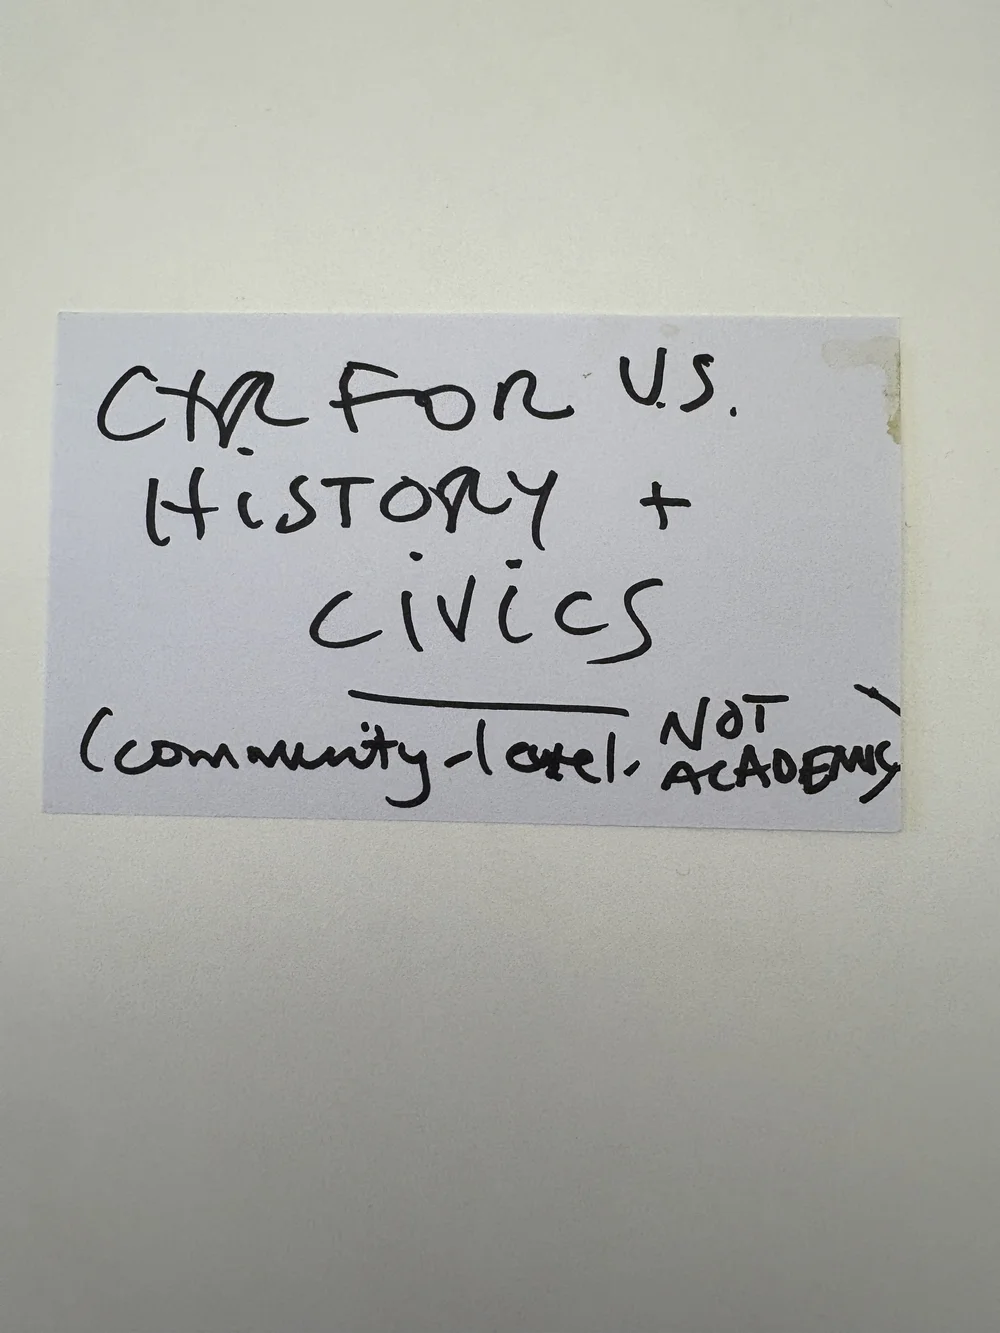 CTR FOR U.S.
HiSTORY +
CiViCS
(community-level. NOT
ACADEMIC)